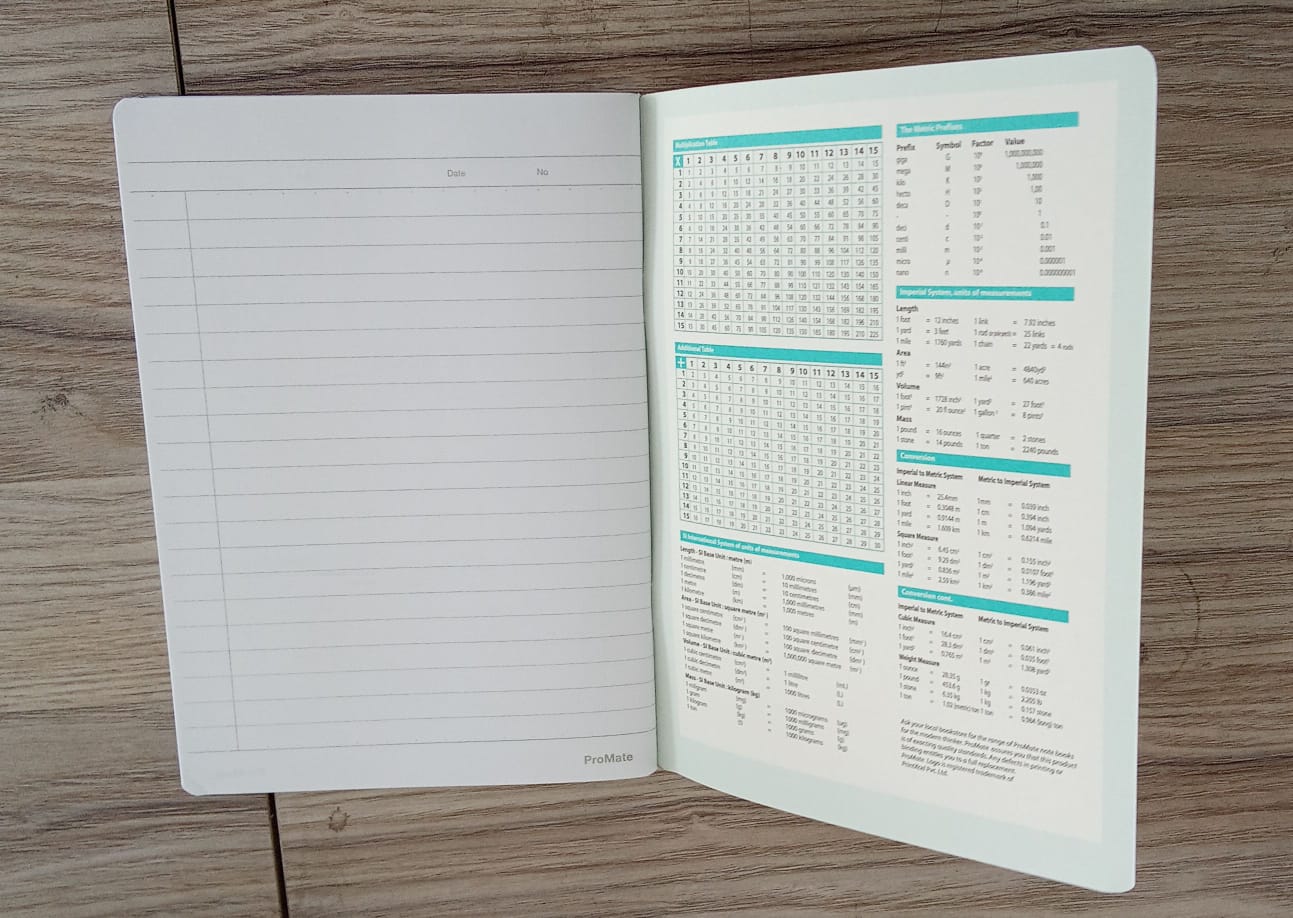 Date No
ProMate
Multiplication Table
X 1 2 3 4 5 6 7 8 9 10 11 12 13 14 15
1 1 2 3 4 5 6 7 8 9 10 11 12 13 14 15
2 2 4 6 8 10 12 14 16 18 20 22 24 26 28 30
3 3 6 9 12 15 18 21 24 27 30 33 36 39 42 45
4 4 8 12 16 20 24 28 32 36 40 44 48 52 56 60
5 5 10 15 20 25 30 35 40 45 50 55 60 65 70 75
6 6 12 18 24 30 36 42 48 54 60 66 72 78 84 90
7 7 14 21 28 35 42 49 56 63 70 77 84 91 98 105
8 8 16 24 32 40 48 56 64 72 80 88 96 104 112 120
9 9 18 27 36 45 54 63 72 81 90 99 108 117 126 135
10 10 20 30 40 50 60 70 80 90 100 110 120 130 140 150
11 11 22 33 44 55 66 77 88 99 110 121 132 143 154 165
12 12 24 36 48 60 72 84 96 108 120 132 144 156 168 180
13 13 26 39 52 65 78 91 104 117 130 143 156 169 182 195
14 14 28 42 56 70 84 98 112 126 140 154 168 182 196 210
15 15 30 45 60 75 90 105 120 135 150 165 180 195 210 225
Additional Table
+ 1 2 3 4 5 6 7 8 9 10 11 12 13 14 15
1 2 3 4 5 6 7 8 9 10 11 12 13 14 15 16
2 3 4 5 6 7 8 9 10 11 12 13 14 15 16 17
3 4 5 6 7 8 9 10 11 12 13 14 15 16 17 18
4 5 6 7 8 9 10 11 12 13 14 15 16 17 18 19
5 6 7 8 9 10 11 12 13 14 15 16 17 18 19 20
6 7 8 9 10 11 12 13 14 15 16 17 18 19 20 21
7 8 9 10 11 12 13 14 15 16 17 18 19 20 21 22
8 9 10 11 12 13 14 15 16 17 18 19 20 21 22 23
9 10 11 12 13 14 15 16 17 18 19 20 21 22 23 24
10 11 12 13 14 15 16 17 18 19 20 21 22 23 24 25
11 12 13 14 15 16 17 18 19 20 21 22 23 24 25 26
12 13 14 15 16 17 18 19 20 21 22 23 24 25 26 27
13 14 15 16 17 18 19 20 21 22 23 24 25 26 27 28
14 15 16 17 18 19 20 21 22 23 24 25 26 27 28 29
15 16 17 18 19 20 21 22 23 24 25 26 27 28 29 30
SI International System of units of measurements
Length - SI Base Unit : metre (m)
1 millimetre (mm) = 1,000 microns (µm)
1 centimetre (cm) = 10 millimetres (mm)
1 decimetre (dm) = 10 centimetres (cm)
1 metre (m) = 1,000 millimetres (mm)
1 kilometre (km) = 1,000 metres (m)
Area - SI Base Unit : square metre (m²)
1 square centimetre (cm²) = 100 square millimetres (mm²)
1 square decimetre (dm²) = 100 square centimetre (cm²)
1 square metre (m²) = 100 square decimetre (dm²)
1 square kilometre (km²) = 1,000,000 square metre (m²)
Volume - SI Base Unit : cubic metre (m³)
1 cubic centimetre (cm³) = 1 millilitre (mL)
1 cubic decimetre (dm³) = 1 litre (L)
1 cubic metre (m³) = 1000 litres (L)
Mass - SI Base Unit : kilogram (kg)
1 miligram (mg) = 1000 micrograms (ug)
1 gram (g) = 1000 miligrams (mg)
1 kilogram (kg) = 1000 grams (g)
1 ton (t) = 1000 kilograms (kg)
The Metric Prefixes
Prefix Symbol Factor Value
giga G 10⁹ 1,000,000,000
mega M 10⁶ 1,000,000
kilo K 10³ 1,000
hecto H 10² 1,00
deca D 10¹ 10
- - 10⁰ 1
deci d 10⁻¹ 0.1
centi c 10⁻² 0.01
milli m 10⁻³ 0.001
micro µ 10⁻⁶ 0.000001
nano n 10⁻⁹ 0.000000001
Imperial System, units of measurements
Length
1 foot = 12 inches 1 link = 7.92 inches
1 yard = 3 feet 1 rod = 25 links
1 mile = 1760 yards 1 chain = 22 yards = 4 rods
Area
1 ft² = 144in² 1 acre = 4840yd²
yd² = 9ft² 1 mile² = 640 acres
Volume
1 foot³ = 1728 inch³ 1 yard³ = 27 foot³
1 pint³ = 20 fl ounce³ 1 gallon³ = 8 pints³
Mass
1 pound = 16 ounces 1 quarter = 2 stones
1 stone = 14 pounds 1 ton = 2240 pounds
Conversion
Imperial to Metric System Metric to Imperial System
Linear Measure
1 inch = 25.4mm 1mm = 0.039 inch
1 foot = 0.3048 m 1 cm = 0.394 inch
1 yard = 0.9144 m 1 m = 1.094 yards
1 mile = 1.609 km 1 km = 0.6214 mile
Square Measure
1 inch² = 6.45 cm² 1 cm² = 0.155 inch²
1 foot² = 9.29 dm² 1 dm² = 0.0107 foot²
1 yard² = 0.836 m² 1 m² = 1.196 yard²
1 mile² = 2.59 km² 1 km² = 0.386 mile²
Conversion cont.
Imperial to Metric System Metric to Imperial System
Cubic Measure
1 inch³ = 16.4 cm³ 1 cm³ = 0.061 inch³
1 foot³ = 28.3 dm³ 1 dm³ = 0.035 foot³
1 yard³ = 0.765 m³ 1 m³ = 1.308 yard³
Weight Measure
1 ounce = 28.35 g 1 gr = 0.0353 oz
1 pound = 453.6 g 1 kg = 2.205 lb
1 stone = 6.35 kg 1 kg = 0.157 stone
1 ton = 1.02 (metric) ton 1 ton = 0.984 (long) ton
Ask your local bookstore for the range of ProMate note books
for the modern thinker. ProMate assures you that this product
is of exacting quality standards. Any defects in printing or
binding entitles you to a full replacement.
ProMate Logo is registered trademark of
PrintXcel Pvt. Ltd.